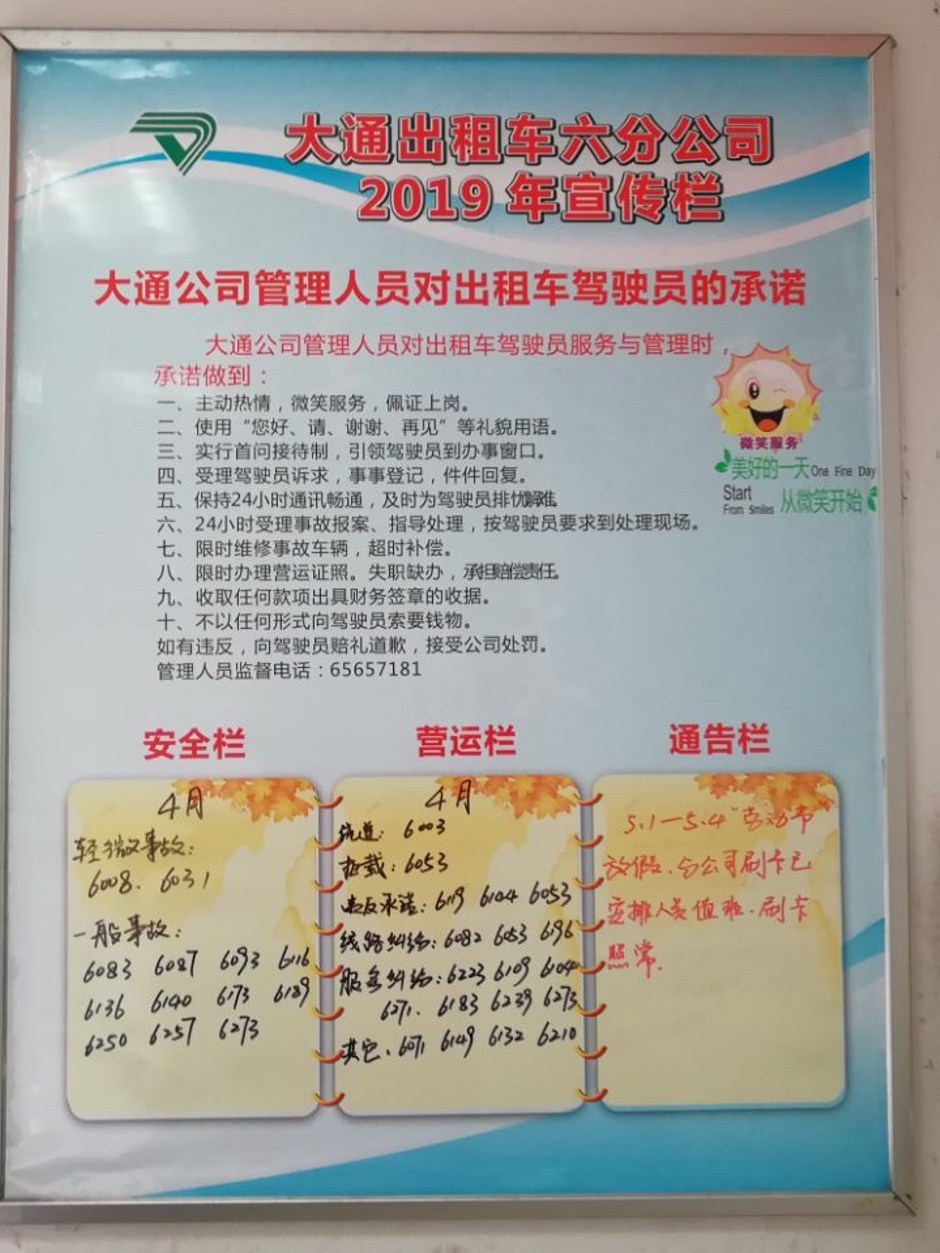 大通出租车六分公司
2019 年宣传栏
大通公司管理人员对出租车驾驶员的承诺
大通公司管理人员对出租车驾驶员服务与管理时，
承诺做到：
一、主动热情，微笑服务，佩证上岗。
二、使用“您好、请、谢谢、再见”等礼貌用语。
三、实行首问接待制，引领驾驶员到办事窗口。
四、受理驾驶员诉求，事事登记，件件回复。
五、保持24小时通讯畅通，及时为驾驶员排忧解难。
六、24小时受理事故报案、指导处理，按驾驶员要求到处理现场。
七、限时维修事故车辆，超时补偿。
八、限时办理营运证照。失职缺办，承担赔偿责任。
九、收取任何款项出具财务签章的收据。
十、不以任何形式向驾驶员索要钱物。
如有违反，向驾驶员赔礼道歉，接受公司处罚。
管理人员监督电话：65657181
微笑服务
美好的一天 One Fine Day
Start
From Smiles 从微笑开始
安全栏
4月
轻微事故：
6008. 6031
一般事故：
6083 6087 6093 6116
6136 6140 6173 6189
6250 6257 6273
营运栏
4月
绕道：6003
拒载：6053
违反承诺：6119 6104 6053
线路纠纷：6082 6053 6196
服务纠纷：6223 6109 6104
6271. 6183 6239 6273
其它、6071 6149 6132 6210
通告栏
5.1—5.4“劳动节”
放假.分公司刷卡已
安排人员值班.刷卡
照常.